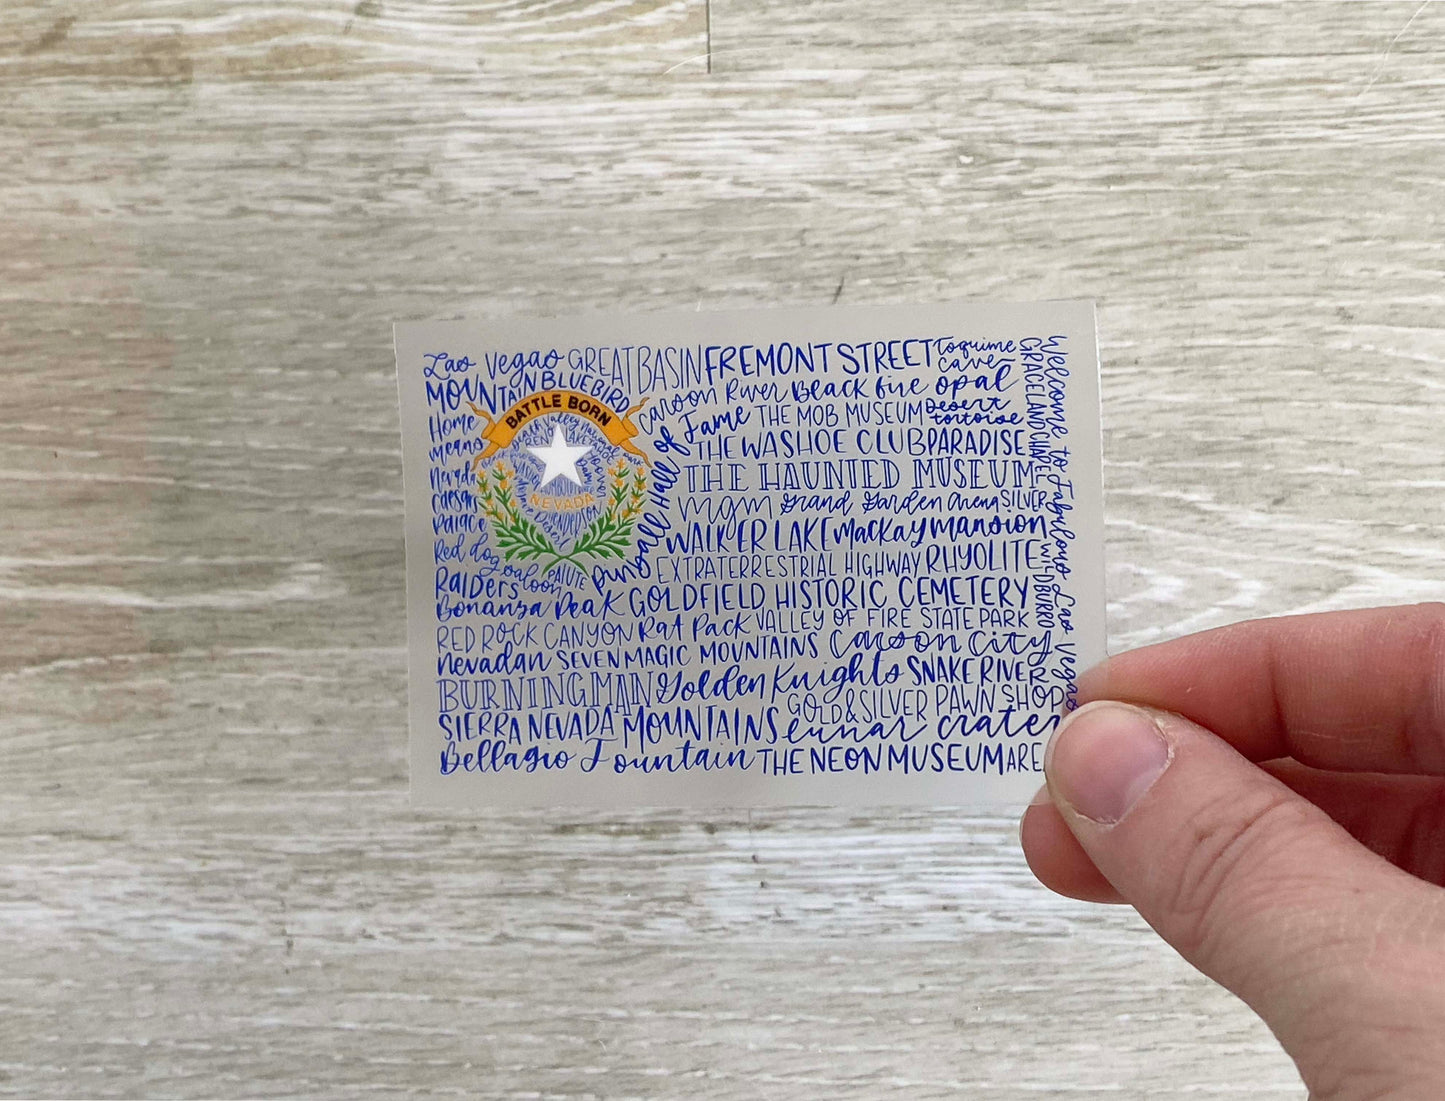 Las Vegas GREAT BASIN FREMONT STREET Toquime Cave
MOUNTAIN BLUEBIRD Carson River Black fire opal
BATTLE BORN
Home means Nevada
Pinball Hall of Fame
THE MOB MUSEUM Desert tortoise
THE WASHOE CLUB PARADISE
THE HAUNTED MUSEUM
Caesars Palace
mgm Grand Garden Arena SILVER
WALKER LAKE Mackay mansion
Red dog saloon
EXTRATERRESTRIAL HIGHWAY RHYOLITE
Death Valley National park
Black fire opal
RENO LAKE TAHOE
NEVADA
HENDERSON
PAIUTE
RAIDERS
Bonanza Peak GOLDFIELD HISTORIC CEMETERY
RED ROCK CANYON Rat Pack VALLEY OF FIRE STATE PARK
nevadan SEVEN MAGIC MOUNTAINS Carson City
BURNING MAN Golden Knights SNAKE RIVER
GOLD & SILVER PAWN SHOP
SIERRA NEVADA MOUNTAINS lunar crater
Bellagio Fountain THE NEON MUSEUM ARE
GRACELAND CHAPEL
WILD BURRO
Welcome to Fabulous Las Vegas